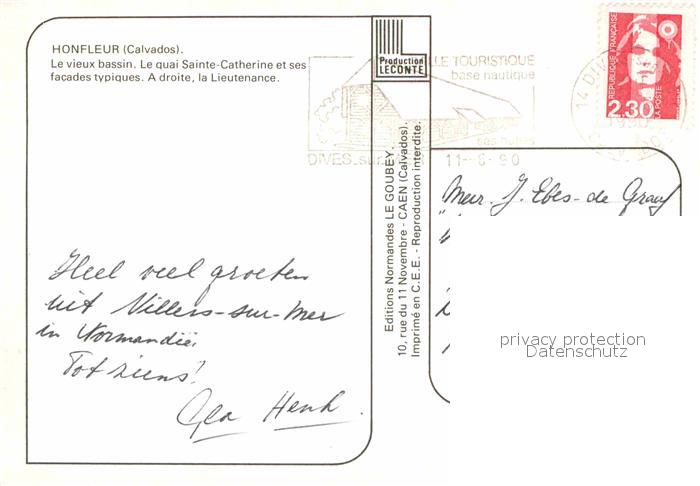 HONFLEUR (Calvados).
Le vieux bassin. Le quai Sainte-Catherine et ses
façades typiques. A droite, la Lieutenance.
Production
LECONTE
LE TOURISTIQUE
base nautique
ses halles
DIVES-sur-MER
11-6-90
14 DIVES
1990
RÉPUBLIQUE FRANÇAISE
LA POSTE
2,30
Editions Normandes LE GOUBEY.
10, rue du 11 Novembre - CAEN (Calvados).
Imprimé en C.E.E. - Reproduction interdite.
Mevr. J. Ebes-de Graaf
Heel veel groeten
uit Villers-sur-Mer
in Normandië.
Tot ziens!
Henk
privacy protection
Datenschutz